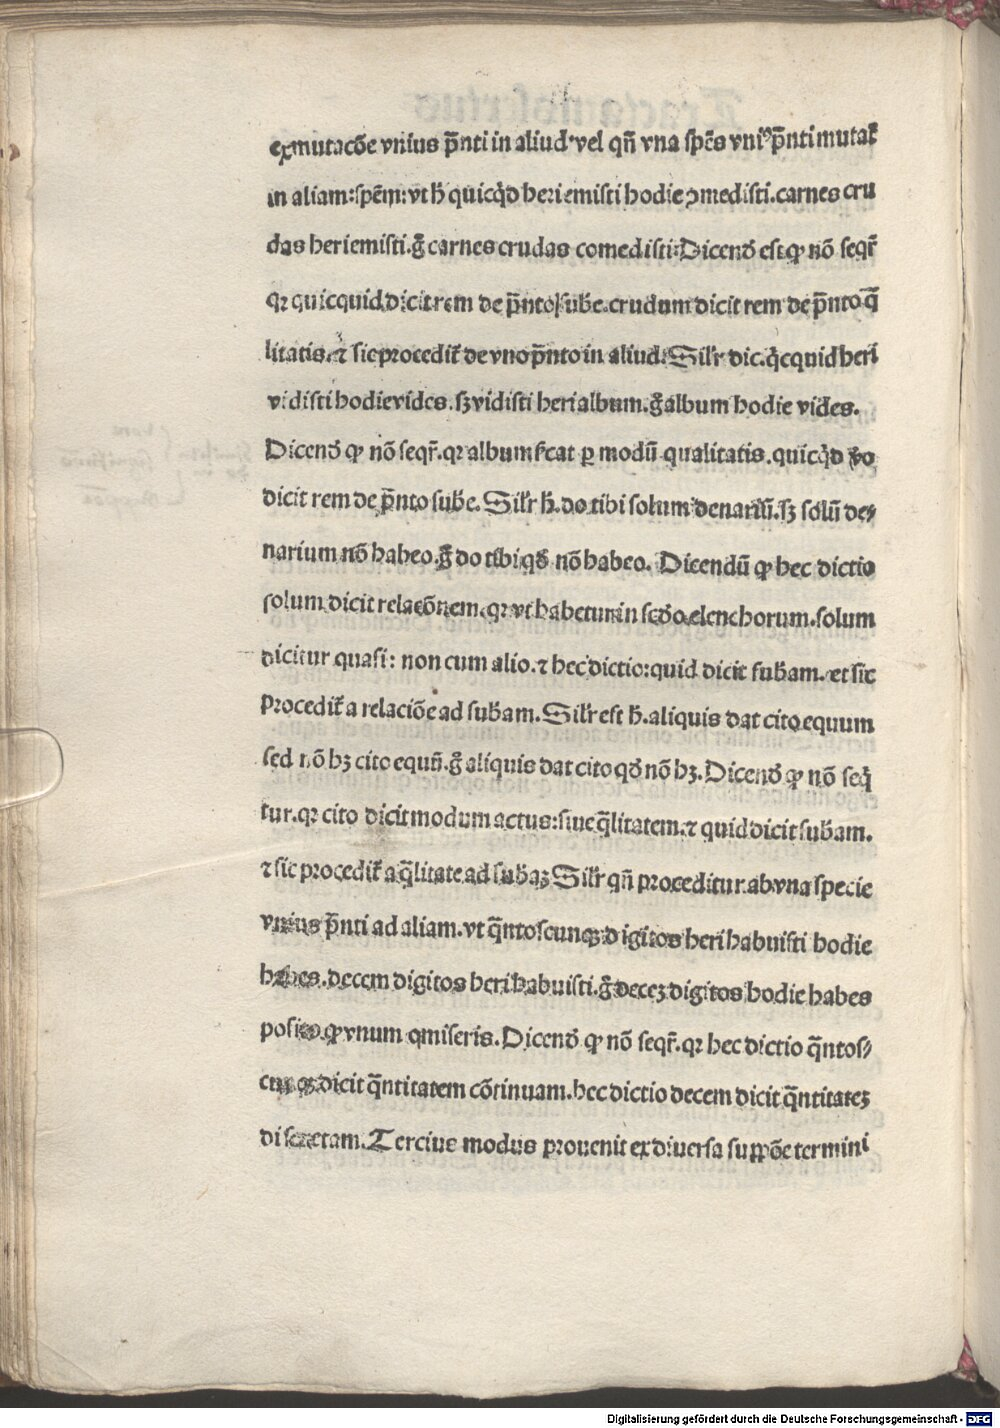 ex mutacōe vnius p̄nti in aliud vel qn̄ vna spēs vniꝰ p̄nti mutat̃
in aliam: spēm: vt h̄ quicq̇d heri emisti hodie ꝯmedisti. carnes cru
das heri emisti. g̃ carnes crudas comedisti: Dicend̄ est ꝙ nō seqr̃
qꝛ quicquid dicit rem de p̄nto sube. crudum dicit rem de p̄nto q̄
litatis. ⁊ sic procedit̃ de vno p̄nto in aliud. Silr̃ dic. q̇cquid heri
vidisti hodie vides. sꝫ vidisti heri album. g̃ album hodie vides.
Dicend̄ ꝙ nō seqr̃. qꝛ album ſicat p modū qualitatis. quicq̇d v̄o
dicit rem de p̄nto sube. Silr̃ h̄. do tibi solum denariū. sꝫ solū de⸗
narium nō habeo. g̃ do tibi qd̄ nō habeo. Dicendū ꝙ hec dictio
solum dicit relacōnem. qꝛ vt habetur in scd̄o elenchorum. solum
dicitur quasi: non cum alio. ⁊ hec dictio: quid dicit subam. et sic
Procedit̃ a relaciōe ad subam. Silr̃ est h̄. aliquis dat cito equum
sed nō hꝫ cito equū. g̃ aliquis dat cito qd̄ nō hꝫ. Dicend̄ ꝙ nō seq̇
tur. qꝛ cito dicit modum actus: siue q̄litatem. ⁊ quid dicit subam.
⁊ sic procedit̃ a q̄litate ad subaꝫ Silr̃ qn̄ proceditur ab vna specie
vnius p̄nti ad aliam. vt q̄ntoscunqꝫ digitos heri habuisti hodie
habes. decem digitos heri habuisti. g̃ deceꝫ digitos hodie habes
posito ꝙ vnum amiseris. Dicend̄ ꝙ nō seqr̃. qꝛ hec dictio q̄ntos⸗
cunqꝫ dicit q̄ntitatem cōtinuam. hec dictio decem dicit q̄ntitateꝫ
discretam. Tercius modus prouenit ex diuersa suppōe termini
Digitalisierung gefördert durch die Deutsche Forschungsgemeinschaft - DFG